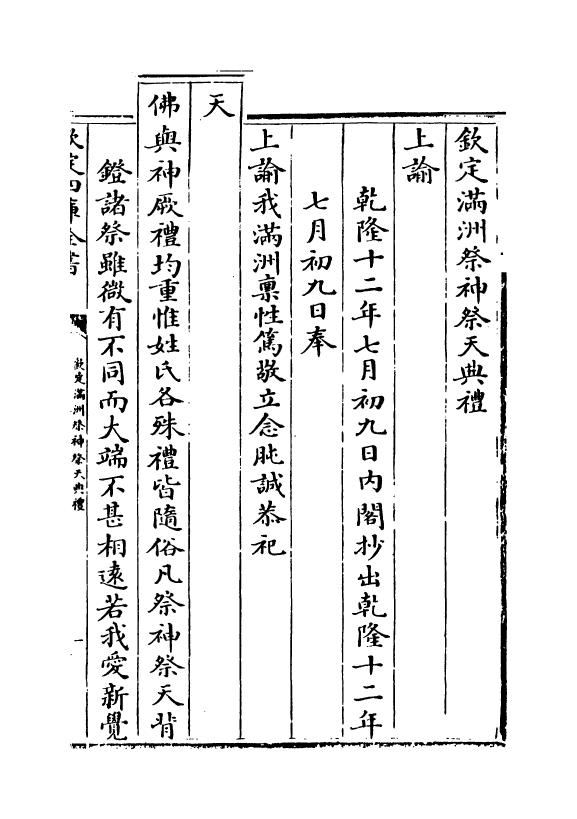 欽定滿洲祭神祭天典禮
上諭
乾隆十二年七月初九日內閣抄出乾隆十二年
七月初九日奉
上諭我滿洲禀性篤敬立念肫誠恭祀
天
佛與神厥禮均重惟姓氏各殊禮皆隨俗凡祭神祭天背
鐙諸祭雖微有不同而大端不甚相遠若我愛新覺
欽定四庫全書
欽定滿洲祭神祭天典禮
一